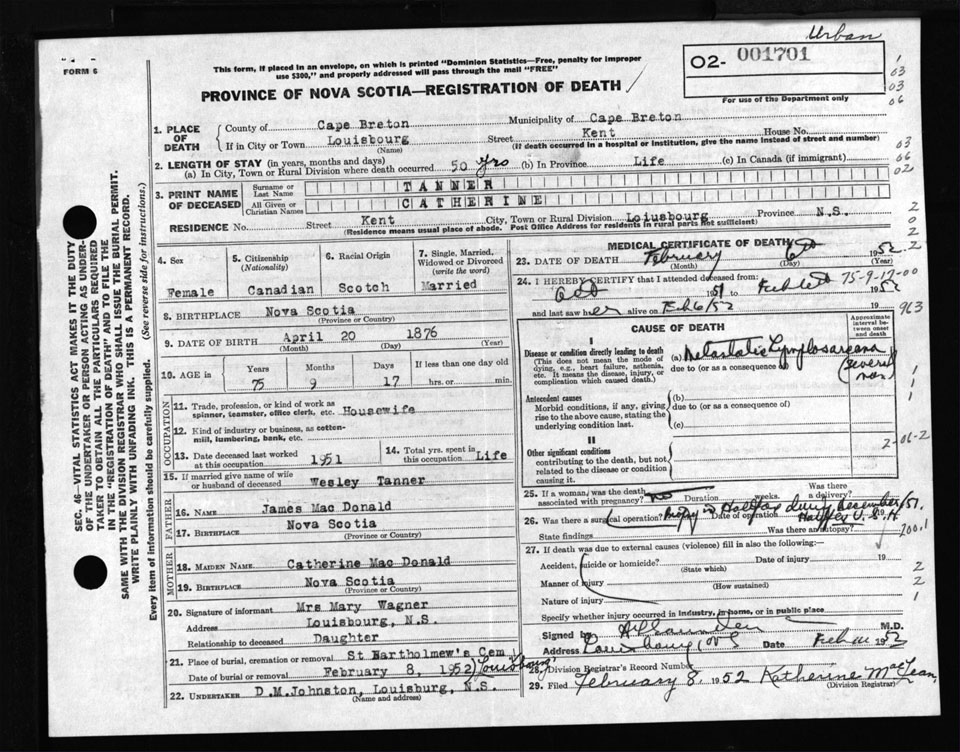 Urban
FORM 6
This form, if placed in an envelope, on which is printed "Dominion Statistics—Free, penalty for improper
use $300," and properly addressed will pass through the mail "FREE"
O2- 001701
For use of the Department only
PROVINCE OF NOVA SCOTIA—REGISTRATION OF DEATH
SEC. 46—VITAL STATISTICS ACT MAKES IT THE DUTY
OF THE UNDERTAKER OR PERSON ACTING AS UNDER-
TAKER TO OBTAIN ALL THE PARTICULARS REQUIRED
IN THE "REGISTRATION OF DEATH" AND TO FILE THE
SAME WITH THE DIVISION REGISTRAR WHO SHALL ISSUE THE BURIAL PERMIT.
WRITE PLAINLY WITH UNFADING INK. THIS IS A PERMANENT RECORD.
Every item of information should be carefully supplied. (See reverse side for instructions.)
1. PLACE OF DEATH
County of Cape Breton Municipality of Cape Breton
If in City or Town Louisbourg Street Kent House No.
(Name) (If death occurred in a hospital or institution, give the name instead of street and number)
2. LENGTH OF STAY (in years, months and days)
(a) In City, Town or Rural Division where death occurred 50 yrs (b) In Province Life (c) In Canada (if immigrant)
3. PRINT NAME OF DECEASED
Surname or Last Name TANNER
All Given or Christian Names CATHERINE
RESIDENCE No. Street Kent City, Town or Rural Division Loiusbourg Province N.S.
(Residence means usual place of abode. Post Office Address for residents in rural parts not sufficient)
4. Sex
Female
5. Citizenship (Nationality)
Canadian
6. Racial Origin
Scotch
7. Single, Married, Widowed or Divorced (write the word)
Married
8. BIRTHPLACE Nova Scotia
(Province or Country)
9. DATE OF BIRTH April 20 1876
(Month) (Day) (Year)
10. AGE in Years Months Days If less than one day old
75 9 17 hrs. or min.
OCCUPATION
11. Trade, profession, or kind of work as
spinner, teamster, office clerk, etc. Housewife
12. Kind of industry or business, as cotton-
mill, lumbering, bank, etc.
13. Date deceased last worked at this occupation 1951
14. Total yrs. spent in this occupation Life
15. If married give name of wife or husband of deceased Wesley Tanner
FATHER
16. Name James Mac Donald
17. Birthplace Nova Scotia
(Province or Country)
MOTHER
18. MAIDEN NAME Catherine Mac Donald
19. BIRTHPLACE Nova Scotia
(Province or Country)
20. Signature of informant Mrs Mary Wagner
Address Louisbourg, N.S.
Relationship to deceased Daughter
21. Place of burial, cremation or removal St Bartholmew's Cem
Date of burial or removal February 8, 1952 Louisbourg
22. UNDERTAKER D.M.Johnston, Louisburg, N.S.
(Name and address)
MEDICAL CERTIFICATE OF DEATH
23. DATE OF DEATH February 6 1952
(Month) (Day) (Year)
24. I HEREBY CERTIFY that I attended deceased from:
Oct 1951 to 1952
75-9-17-00
and last saw her alive on Feb 6/52 19
963
CAUSE OF DEATH
Approximate interval between onset and death
I
Disease or condition directly leading to death (a) Metastatic Lymphosarcoma
(This does not mean the mode of dying, e.g., heart failure, asthenia, etc. It means the disease, injury, or complication which caused death.)
due to (or as a consequence of)
several
Antecedent causes (b)
Morbid conditions, if any, giving rise to the above cause, stating the underlying condition last.
due to (or as a consequence of)
(c)
II
Other significant conditions
contributing to the death, but not related to the disease or condition causing it.
2-06-2
25. If a woman, was the death associated with pregnancy? no Duration weeks. Was there a delivery?
26. Was there a surgical operation? Biopsy in Halifax during December/51. Date of operation
State findings Was there an autopsy?
27. If death was due to external causes (violence) fill in also the following:—
Accident, suicide or homicide? Date of injury 19
(State which)
Manner of injury
(How sustained)
Nature of injury
Specify whether injury occurred in industry, in home, or in public place
Signed by M.D.
Address Louisbourg, NS Date 1952
28. Division Registrar's Record Number
29. Filed February 8, 1952 Katherine MacLean
(Division Registrar)